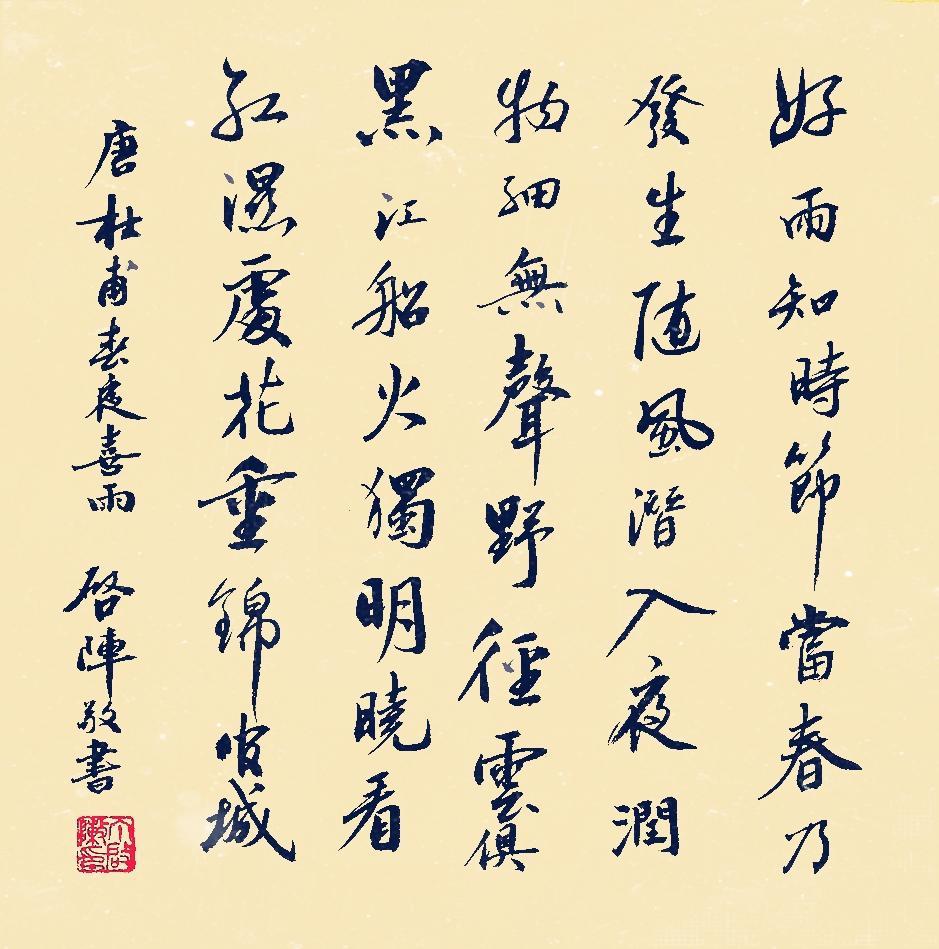 好雨知時節當春乃
發生随風潛入夜潤
物細無聲野徑雲俱
黑江船火獨明曉看
紅濕處花重錦官城
唐杜甫春夜喜雨 啓陣敬書